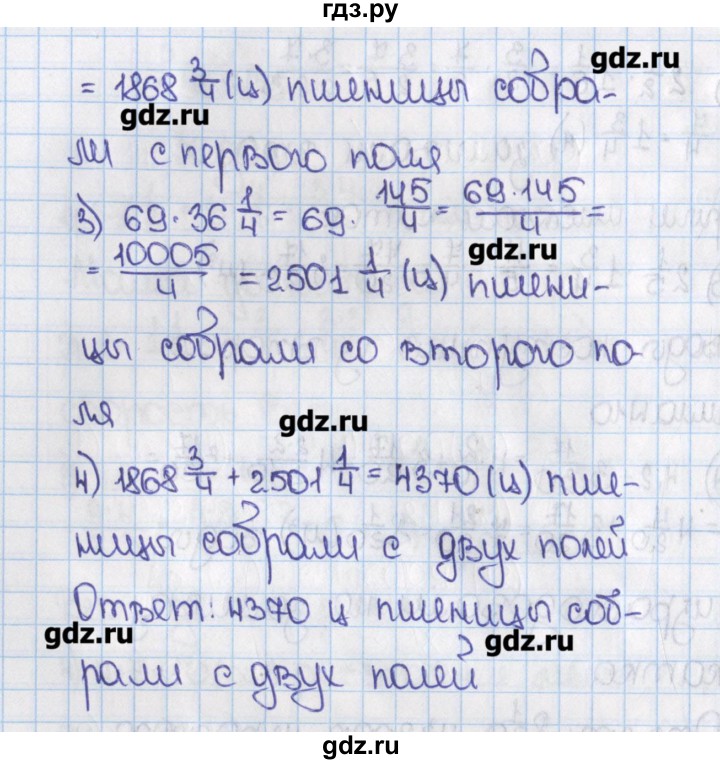 гдз.ру
gdz.ru
= 1868 3/4 (ц) пшеницы собра-
gdz.ru
ли с первого поля
3) 69·36 1/4 = 69· 145/4 = 69·145/4 =
gdz.ru
= 10005/4 = 2501 1/4 (ц) пшени-
цы собрали со второго по-
ля
gdz.ru
4) 1868 3/4 + 2501 1/4 = 4370 (ц) пше-
ницы собрали с двух полей
Ответ: 4370 ц пшеницы соб-
gdz.ru
gdz.ru
рали с двух полей
gdz.ru